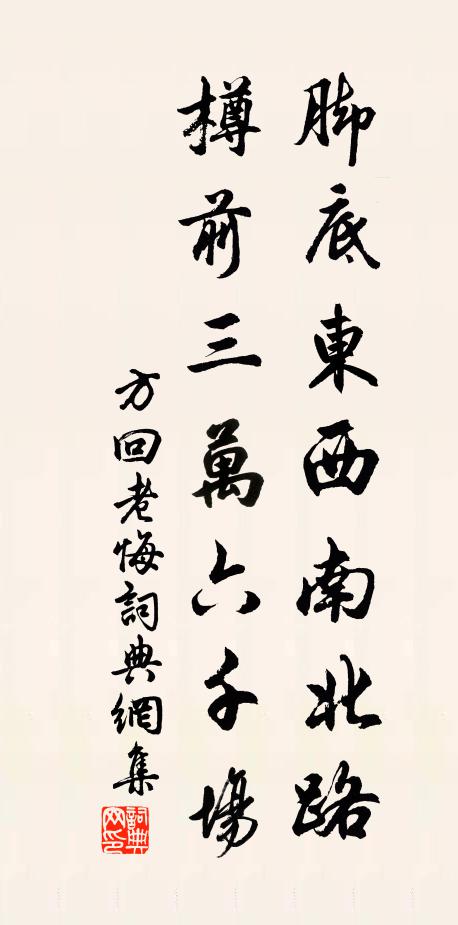 脚底東西南北路
樽前三萬六千場
方回老悔詞典網集
詞典网印